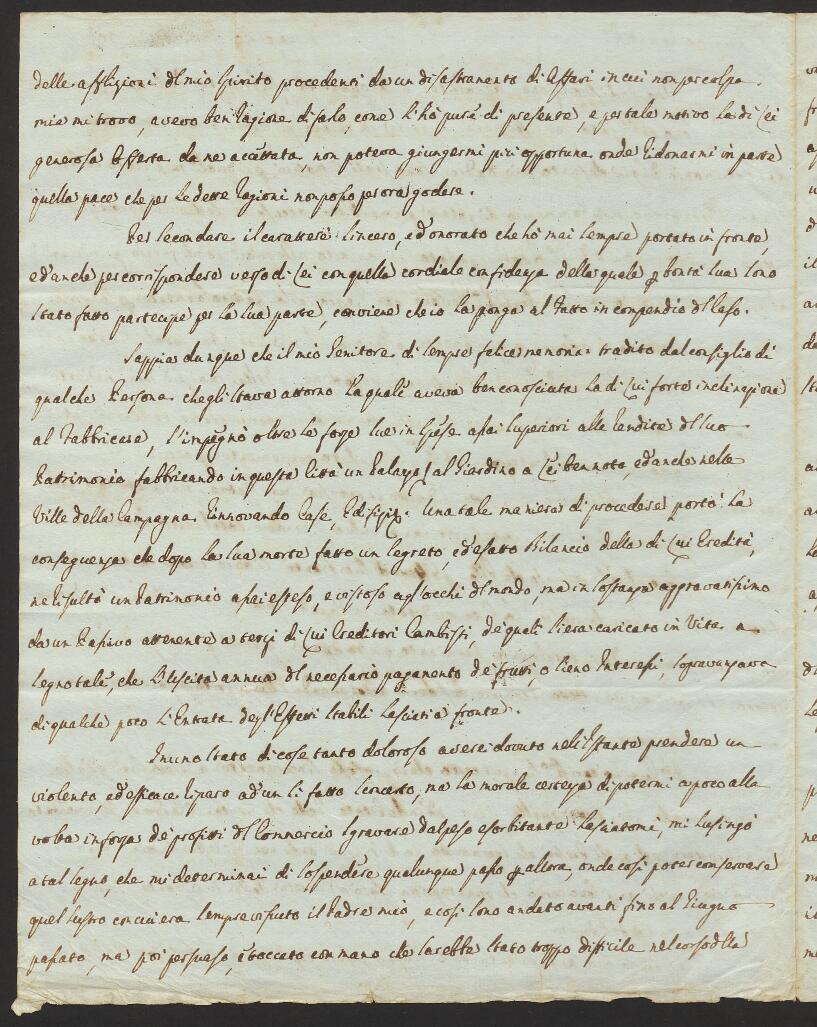 delle afflizioni del mio Spirito procedenti da un disastramento di Affari in cui non per colpa
mia mi trovo, avevo ben ragione di farlo, come l'hò pure di presente, e per tale motivo la di Lei
generosa Offerta da me accettata, non poteva giungermi più opportuna onde ridonarmi in parte
quella pace che per le dette ragioni non posso per ora godere.
Per secondare il carattere sincero, ed onorato che hò mai sempre portato in fronte,
ed anche per corrispondere verso di Lei con quella cordiale confidenza della quale p bontà sua sono
stato fatto partecipe per la sua parte, conviene che io la ponga al fatto in compendio del Caso.
Sappia dunque che il mio Genitore di sempre felice memoria tradito dal consiglio di
qualche Persona che gli stava attorno la quale aveva ben conosciuta la di Lui forte inclinazione
al Fabbricare, l'impegnò oltre le forze sue in Spese assai superiori alle rendite del suo
Patrimonio fabbricando in questa Città un Palazzo al Giardino a Lei ben noto, ed anche nelle
Ville della Campagna rinnovando Case, Edifizj. Una tale maniera di procedere portò la
conseguenza che dopo la sua morte fatto un segreto, ed esatto Bilancio della di Lui Eredità,
ne risultò un Patrimonio assai esteso, e vistoso agl'occhi del mondo, ma in sostanza aggravatissimo
da un Passivo attenente a terzi di Lui Creditori Cambisti, de quali s'era caricato in Vita a
segno tale, che l'Uscita annua del necessario pagamento de frutti, o sieno Interessi, sopravanzava
di qualche poco l'Entrata degl'Effetti stabili lasciati a fronte.
In uno stato di cose tanto doloroso averei dovuto nell'Istante prendere un
violento, ed efficace riparo ad un sì fatto sconcerto, ma la morale certezza di potermi a poco alla
volta in forza de profitti del Commercio sgravare dal peso esorbitante lasciatomi, mi lusingò
a tal segno, che mi determinai di sospendere qualunque passo p allora, onde così poter conservare
quel lustro con cui era sempre vissuto il Padre mio, e così sono andato avanti fino al Giugno
passato, ma poi persuaso, e toccato con mano che sarebbe stato troppo difficile nel corso della